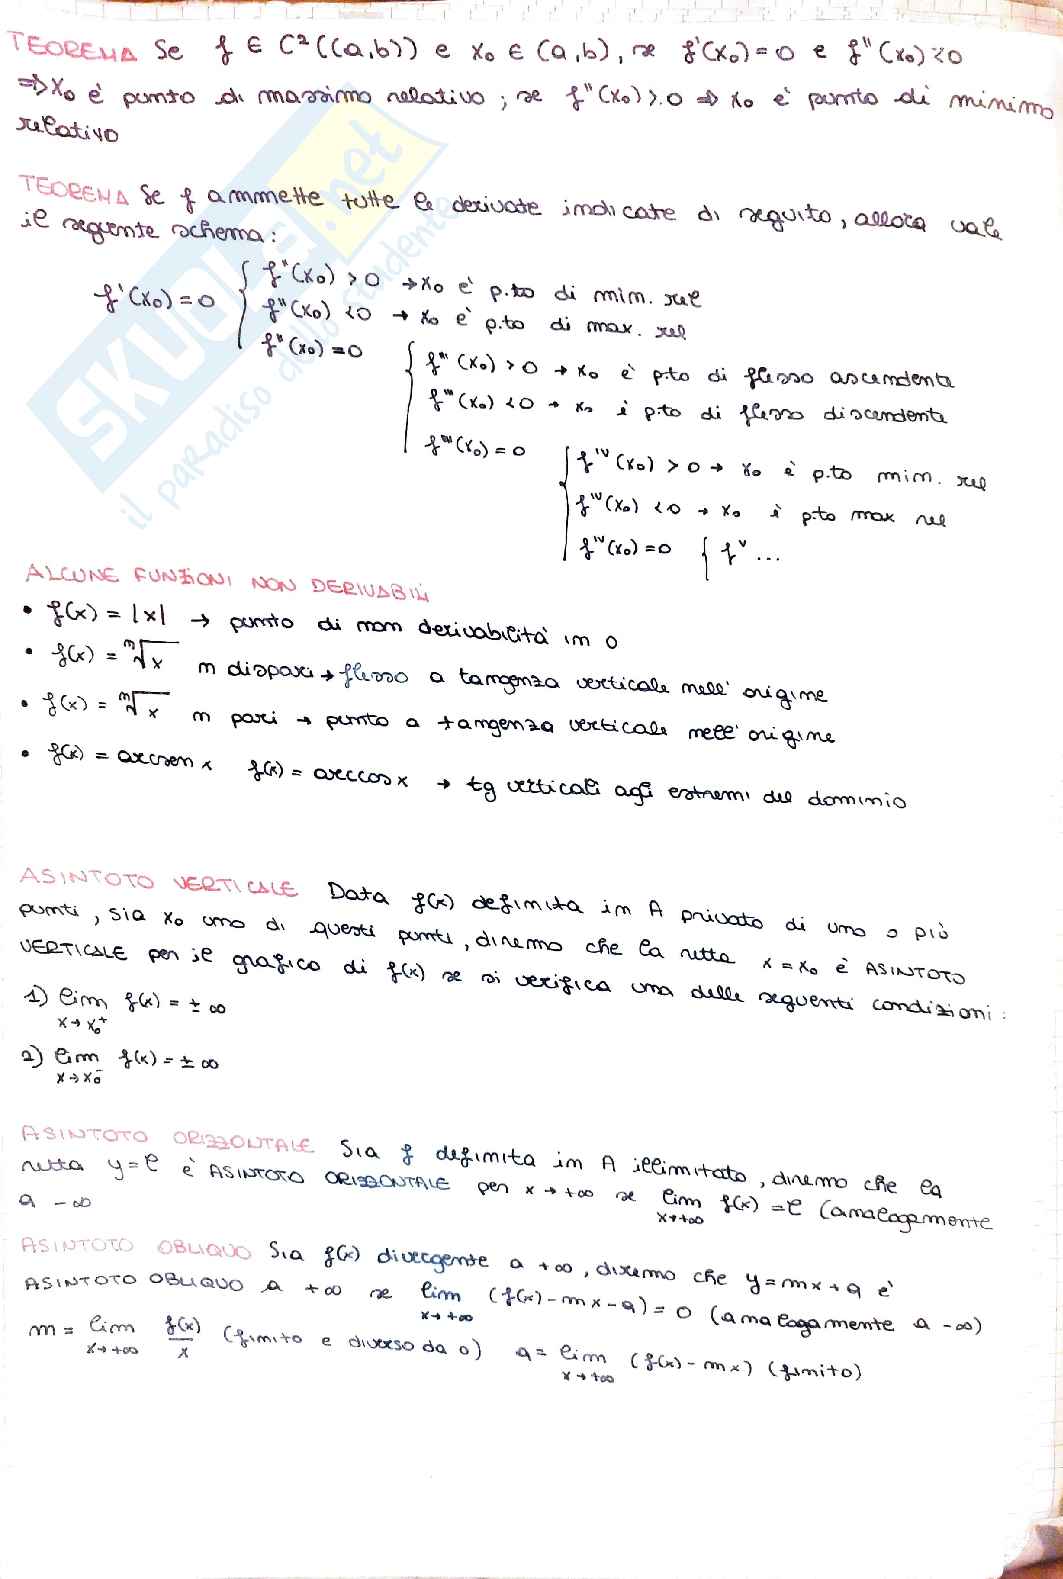 TEOREMA Se f ∈ C²((a,b)) e x₀ ∈ (a,b), se f'(x₀)=0 e f''(x₀)<0
⇒ x₀ è punto di massimo relativo; se f''(x₀)>0 ⇒ x₀ è punto di minimo
relativo
TEOREMA Se f ammette tutte le derivate indicate di seguito, allora vale
il seguente schema:
f'(x₀)=0 { f''(x₀) > 0 → x₀ è p.to di min. rel
f''(x₀) < 0 → x₀ è p.to di max. rel
f''(x₀)=0 { f'''(x₀) > 0 → x₀ è p.to di flesso ascendente
f'''(x₀) < 0 → x₀ è p.to di flesso discendente
f'''(x₀)=0 { f^IV(x₀) > 0 → x₀ è p.to min. rel
f^IV(x₀) < 0 → x₀ è p.to max rel
f^IV(x₀)=0 { f^V ...
ALCUNE FUNZIONI NON DERIVABILI
• f(x) = |x| → punto di non derivabilità in 0
• f(x) = ⁿ√x n dispari → flesso a tangenza verticale nell' origine
• f(x) = ⁿ√x n pari → punto a tangenza verticale nell' origine
• f(x) = arcsen x f(x) = arccos x → tg verticali agli estremi del dominio
ASINTOTO VERTICALE Data f(x) definita in A privato di uno o più
punti, sia x₀ uno di questi punti, diremo che la retta x = x₀ è ASINTOTO
VERTICALE per il grafico di f(x) se si verifica una delle seguenti condizioni:
1) lim f(x) = ± ∞
x→x₀⁺
2) lim f(x) = ± ∞
x→x₀⁻
ASINTOTO ORIZZONTALE Sia f definita in A illimitato, diremo che la
retta y=l è ASINTOTO ORIZZONTALE per x → +∞ se lim f(x) = l (analogamente
x→+∞
a -∞
ASINTOTO OBLIQUO Sia f(x) divergente a +∞, diremo che y=mx+q è
ASINTOTO OBLIQUO a +∞ se lim (f(x)-mx-q)=0 (analogamente a -∞)
x→+∞
m = lim f(x)/x (finito e diverso da 0) q = lim (f(x)-mx) (finito)
x→+∞ x→+∞
SKUOLA.net
il paradiso dello studente